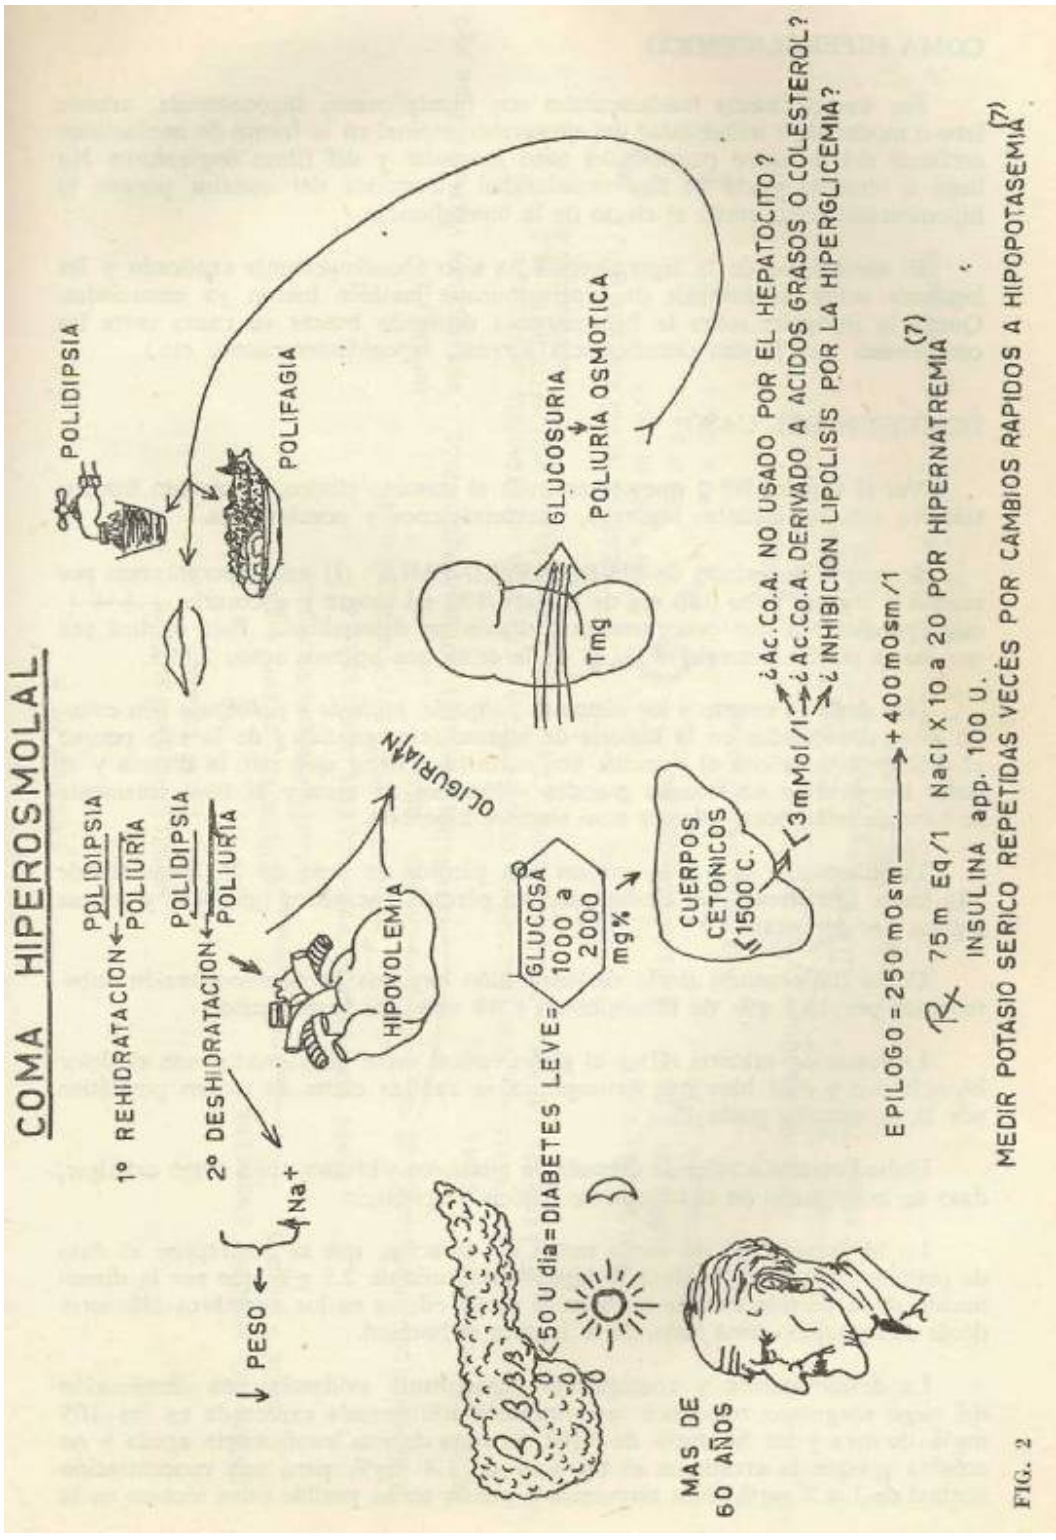 COMA HIPEROSMOLAL
1º REHIDRATACION ← POLIDIPSIA
POLIURIA
2º DESHIDRATACION ← POLIDIPSIA
POLIURIA
POLIDIPSIA
POLIFAGIA
↓ PESO ←
Na+
HIPOVOLEMIA
OLIGURIA/N
Tmg
GLUCOSURIA
↓
POLIURIA OSMOTICA
βββββ
<50 U dia=DIABETES LEVE=
GLUCOSA
1000 a
2000
mg%
CUERPOS
CETONICOS
<1500 C.
<3mMol/l
¿Ac.Co.A. NO USADO POR EL HEPATOCITO?
¿Ac.Co.A. DERIVADO A ACIDOS GRASOS O COLESTEROL?
¿INHIBICION LIPOLISIS POR LA HIPERGLICEMIA?
MAS DE
60 AÑOS
EPILOGO=250 mOsm → +400mOsm/1
Rx 75m Eq/1 NaCl X 10 a 20 POR HIPERNATREMIA (7)
INSULINA app. 100 U.
MEDIR POTASIO SERICO REPETIDAS VECES POR CAMBIOS RAPIDOS A HIPOPOTASEMIA (7)
FIG. 2